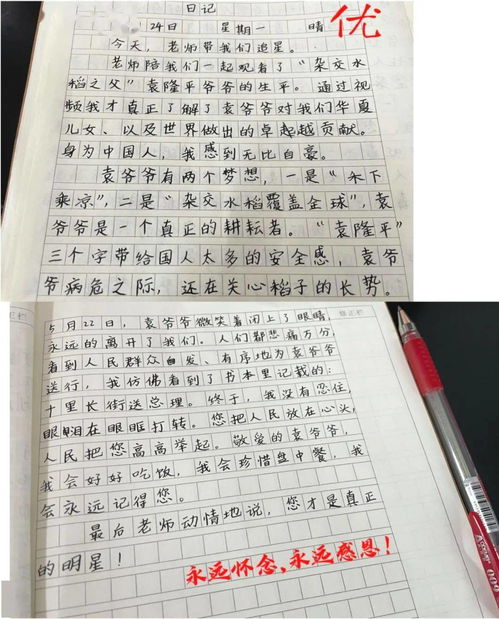 日记
24日 星期一 晴
优
今天，老师带我们追星。
老师陪我们一起观看了"杂交水
稻之父"袁隆平爷爷的生平。通过视
频我才真正了解了袁爷爷对我们华夏
儿女、以及世界做出的卓越越贡献。
身为中国人，我感到无比自豪。
袁爷爷有两个梦想，一是"禾下
乘凉"，二是"杂交水稻覆盖全球"，袁
爷爷是一个真正的耕耘者。"袁隆平"
三个字带给国人太多的安全感，袁爷
爷病危之际，还在关心稻子的长势。
5月22日，袁爷爷微笑着闭上了眼睛，
永远的离开了我们。人们都悲痛万分，
看到人民群众自发、有序地为袁爷爷
送行，我仿佛看到了书本里记载的：
十里长街送总理。终于，我没有忍住，
眼泪在眼眶打转。您把人民放在心头，
人民把您高高举起。敬爱的袁爷爷，
我会好好吃饭，我会珍惜盘中餐，我
会永远记得您。
最后老师动情地说，您才是真正
的明星！
永远怀念，永远感恩！